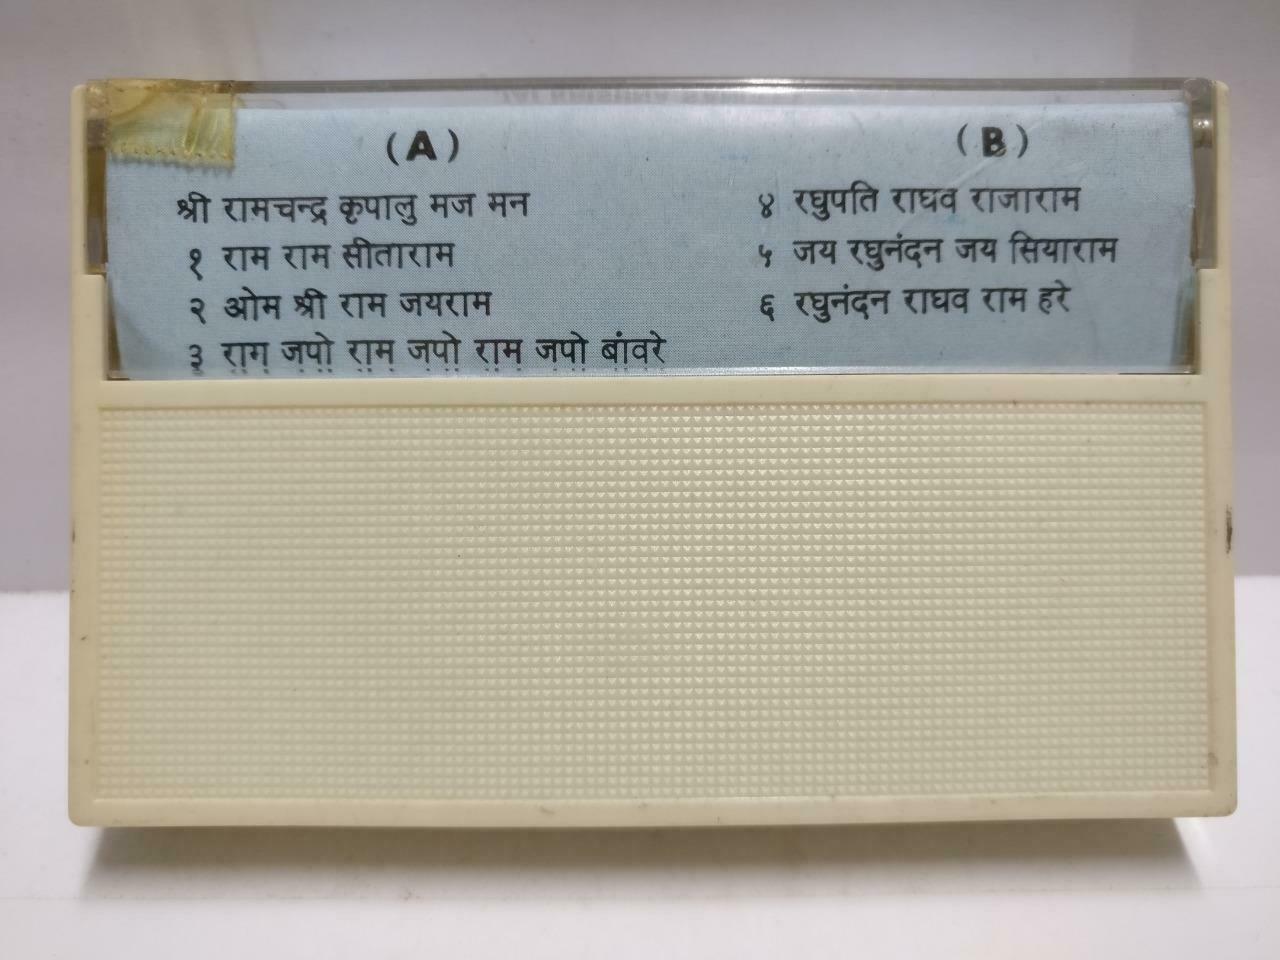 (A)
श्री रामचन्द्र कृपालु मज मन
१ राम राम सीताराम
२ ओम श्री राम जयराम
३ राग जपो राम जपो राम जपो बांवरे
(B)
४ रघुपति राघव राजाराम
५ जय रघुनंदन जय सियाराम
६ रघुनंदन राघव राम हरे